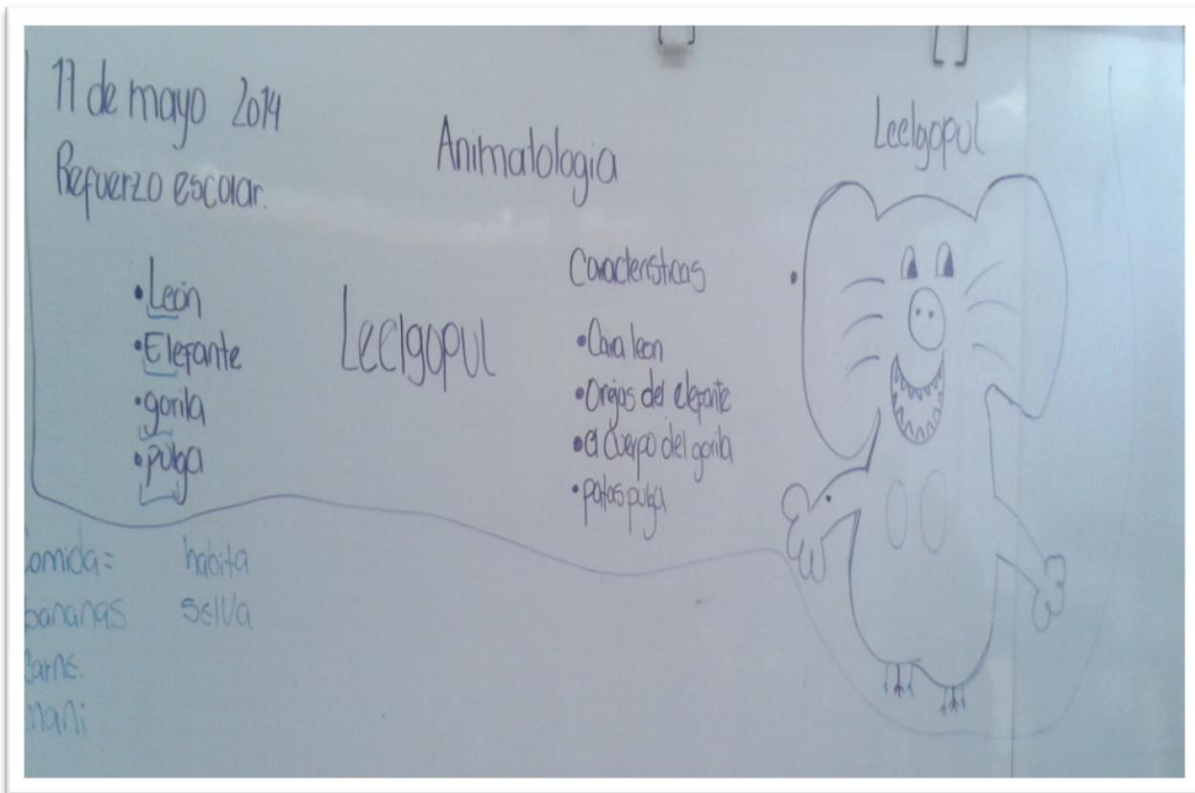 17 de mayo 2014
Refuerzo escolar.
Animatologia
Leelgopul
• León
• Elefante
• gorila
• pulga
Leelgopul
Caracteristicas
• Cara leon
• Orejas del elefante
• el cuerpo del gorila
• patas pulga
comida=
bananas
carne.
mani
habita
selva